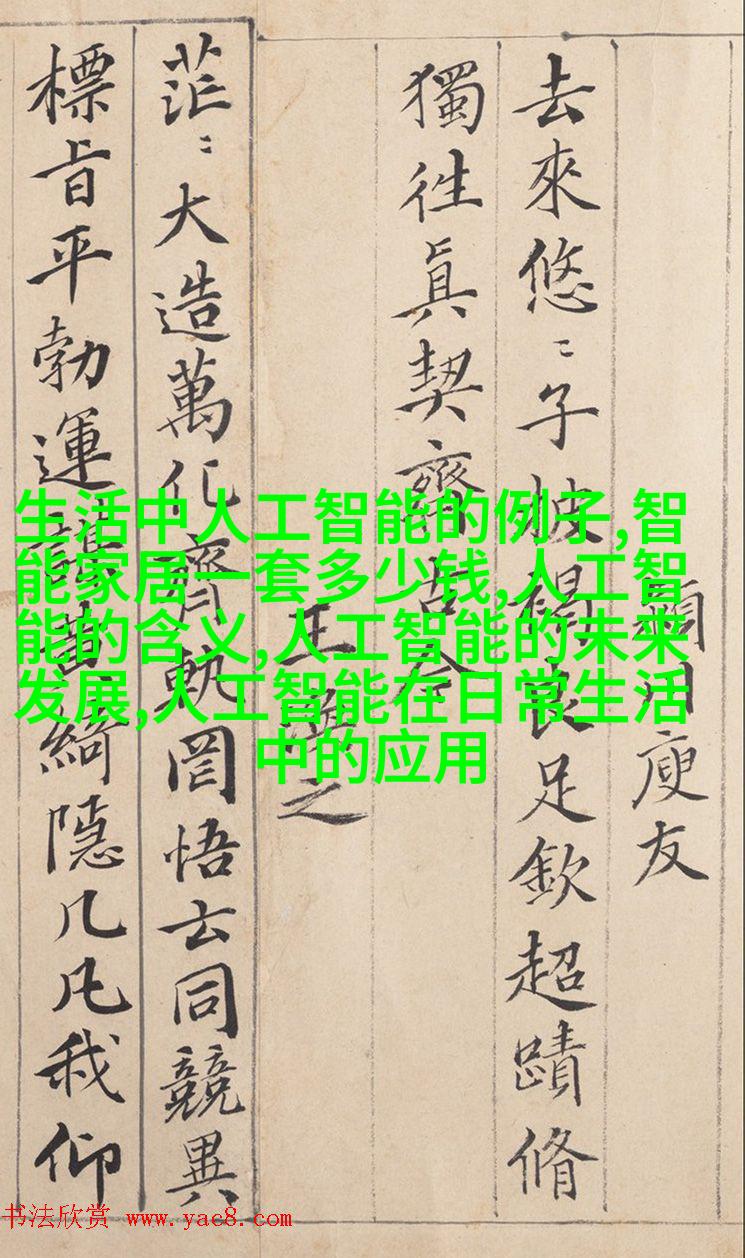 頴川庾友
去來悠〻子披褐良足欽超蹟脩
獨徃眞契齊古今
王渙之
茫〻大造萬化齊軌罔悟玄同競異
標旨平勃運謀黃綺隱几凡我仰
生活中人工智能的例子,智
能家居一套多少钱,人工智
能的含义,人工智能的未来
发展,人工智能在日常生活
中的应用
书法欣赏 www.yac8.com